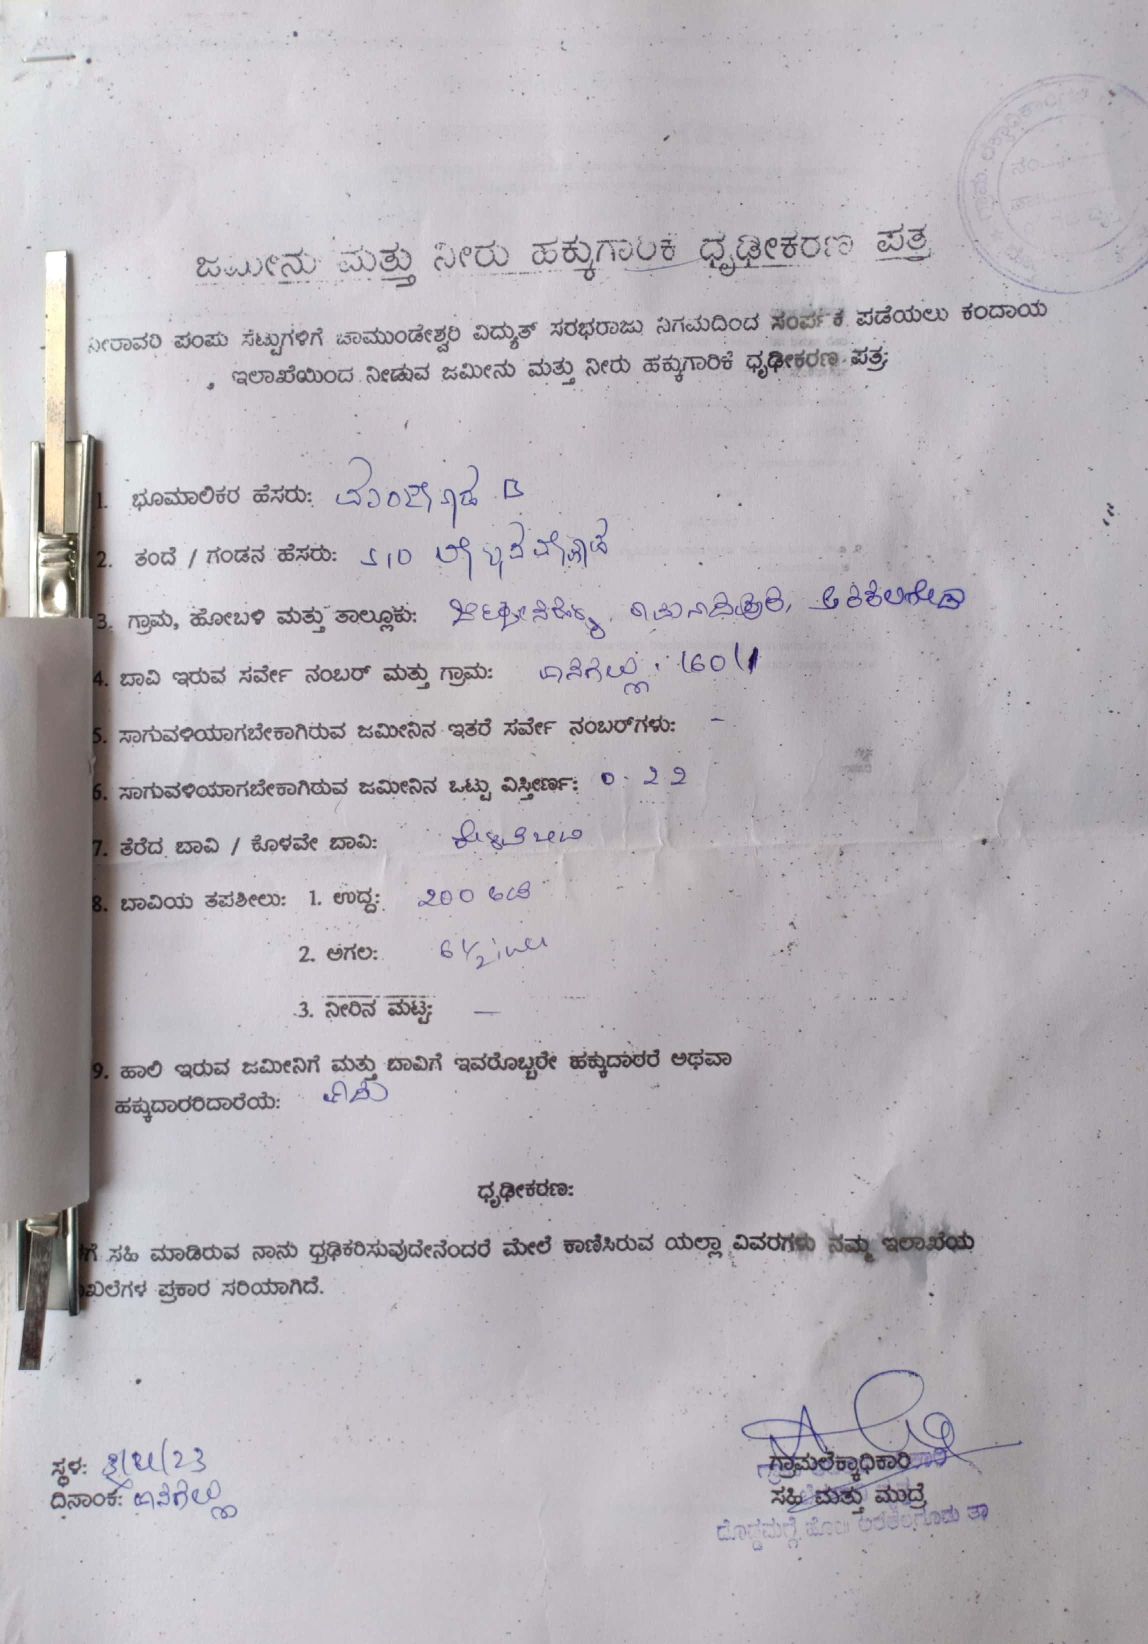 ಗ್ರಾಮ ಲೆಕ್ಕಾಧಿಕಾರಿಗಳ
ಜಮೀನು ಮತ್ತು ನೀರು ಹಕ್ಕುಗಾರಿಕೆ ಧೃಢೀಕರಣ ಪತ್ರ
ನೀರಾವರಿ ಪಂಪು ಸೆಟ್ಟುಗಳಿಗೆ ಚಾಮುಂಡೇಶ್ವರಿ ವಿದ್ಯುತ್ ಸರಭರಾಜು ನಿಗಮದಿಂದ ಸಂರ್ಪಕ ಪಡೆಯಲು ಕಂದಾಯ
ಇಲಾಖೆಯಿಂದ ನೀಡುವ ಜಮೀನು ಮತ್ತು ನೀರು ಹಕ್ಕುಗಾರಿಕೆ ಧೃಢೀಕರಣ ಪತ್ರ;
1. ಭೂಮಾಲಿಕರ ಹೆಸರು: B
2. ತಂದೆ / ಗಂಡನ ಹೆಸರು: S/O
3. ಗ್ರಾಮ, ಹೋಬಳಿ ಮತ್ತು ತಾಲ್ಲೂಕು:
4. ಬಾವಿ ಇರುವ ಸರ್ವೇ ನಂಬರ್ ಮತ್ತು ಗ್ರಾಮ: 160/1
5. ಸಾಗುವಳಿಯಾಗಬೇಕಾಗಿರುವ ಜಮೀನಿನ ಇತರೆ ಸರ್ವೇ ನಂಬರ್‌ಗಳು: –
6. ಸಾಗುವಳಿಯಾಗಬೇಕಾಗಿರುವ ಜಮೀನಿನ ಒಟ್ಟು ವಿಸ್ತೀರ್ಣ: 0-22
7. ತೆರೆದ ಬಾವಿ / ಕೊಳವೇ ಬಾವಿ:
8. ಬಾವಿಯ ತಪಶೀಲು: 1. ಉದ್ದ: 200 ಅಡಿ
2. ಅಗಲ: 6 1/2
3. ನೀರಿನ ಮಟ್ಟ: —
9. ಹಾಲಿ ಇರುವ ಜಮೀನಿಗೆ ಮತ್ತು ಬಾವಿಗೆ ಇವರೊಬ್ಬರೇ ಹಕ್ಕುದಾರರೆ ಅಥವಾ
ಹಕ್ಕುದಾರರಿದಾರೆಯೆ:
ಧೃಢೀಕರಣ:
ಗೆ ಸಹಿ ಮಾಡಿರುವ ನಾನು ಧ್ರಢಿಕರಿಸುವುದೇನೆಂದರೆ ಮೇಲೆ ಕಾಣಿಸಿರುವ ಯಲ್ಲಾ ವಿವರಗಳು ನಮ್ಮ ಇಲಾಖೆಯ
ಖಲೆಗಳ ಪ್ರಕಾರ ಸರಿಯಾಗಿದೆ.
ಸ್ಥಳ:
ದಿನಾಂಕ:
ಗ್ರಾಮಲೆಕ್ಕಾಧಿಕಾರಿ
ಸಹಿ ಮತ್ತು ಮುದ್ರೆ
ದೊಡ್ಡಮಗ್ಗೆ ಹೋ॥ ಅರಕಲಗೂಡು ತಾ